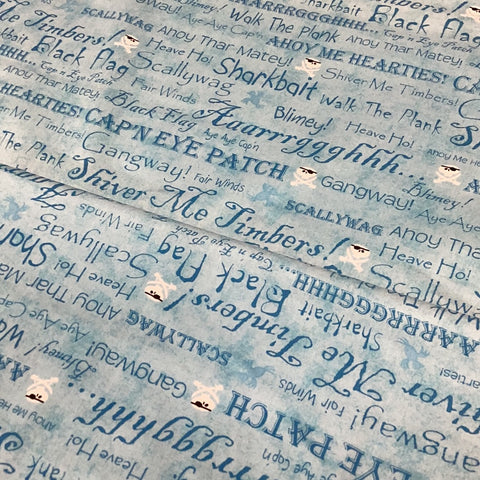 SCALLYWAG Aye Aye Cap'n Blimey! Sharkbait
Timbers! AAARRRGGGHHH... Walk The Plank Black
Black Flag Heave Ho! Ahoy Thar Matey! Cap'n Eye Patch
Cap'n Eye Patch Scallywag AHOY ME HEARTIES!
Ahoy Thar Matey! Fair Winds Sharkbait Shiver Me Timbers!
HEARTIES! Black Flag Blimey! Walk The Plank
Me Timbers! CAP'N EYE PATCH Aye Aye Cap'n Aaarrrggghhh... Heave Ho! Ahoy Me
The Plank Gangway! Fair Winds Gangway! Blimey!
Shiver Me Timbers! SCALLYWAG Aye Aye
Ahoy Thar
Heave Ho!
Scallywag
Fair Winds Cap'n Eye Patch
Scallywag Black Flag AAARRRGGGHHH
Heave Ho! Sharkbait
Ahoy Thar Timbers!
Aye Aye Cap SCALLYWAG Shiver Me
Blimey! Gangway! Fair Winds Gangway!
Ahoy Me EYE PATCH
Heave Ho! Aye Aye Cap'n